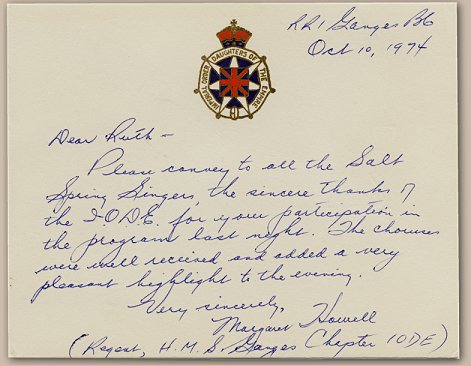 RR1 Ganges BC
Oct 10, 1974
IMPERIAL ORDER DAUGHTERS OF THE EMPIRE
Dear Ruth –
Please convey to all the Salt
Spring Singers, the sincere thanks of
the I.O.D.E. for your participation in
the program last night. The choruses
were well received and added a very
pleasant highlight to the evening.
Very sincerely,
Margaret Howell
(Regent, H.M.S. Ganges Chapter IODE)